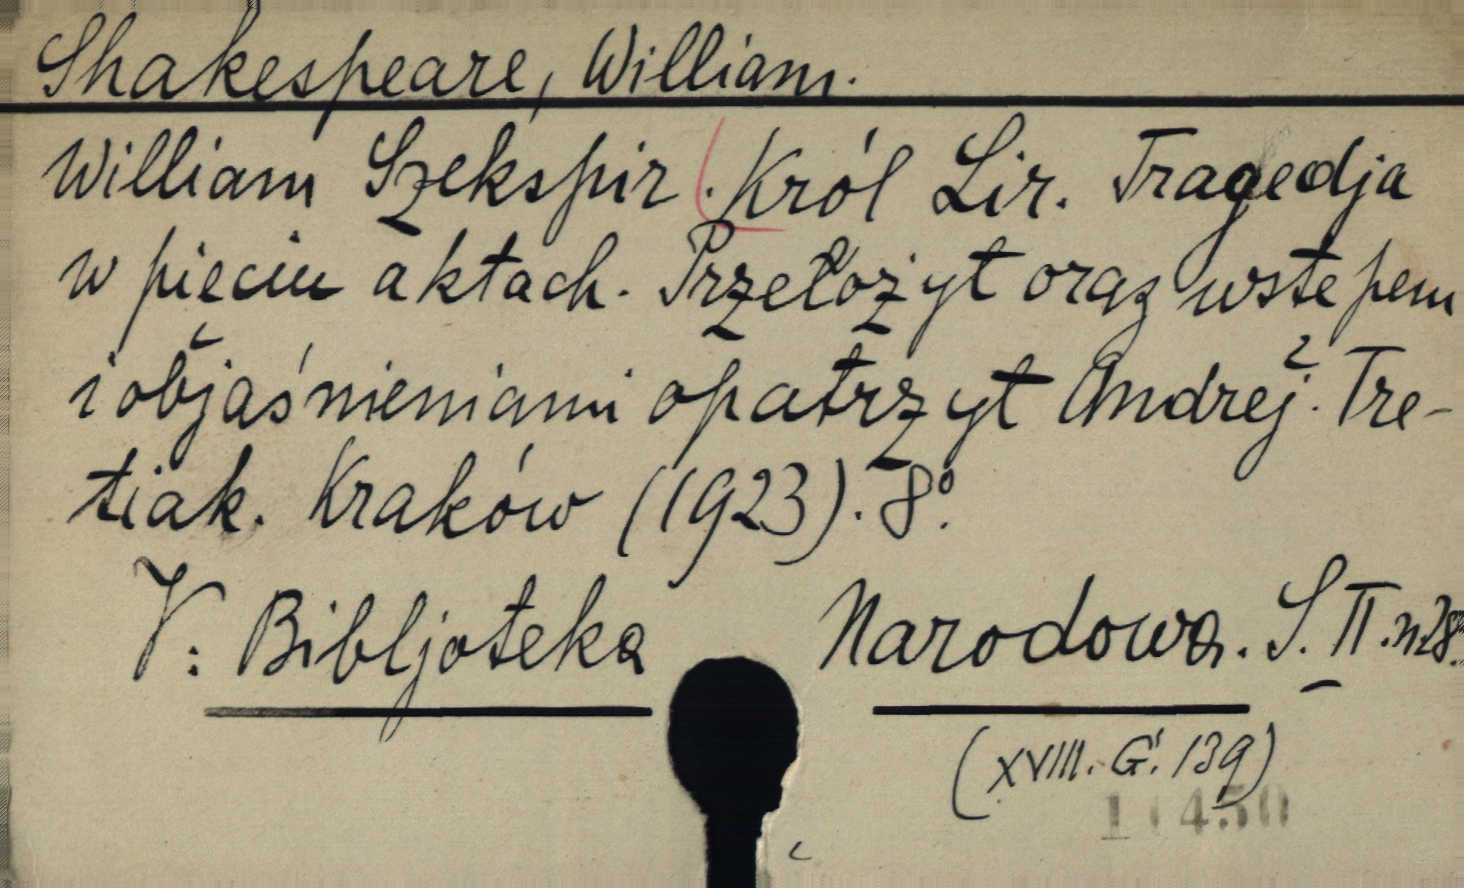 Shakespeare, William.
William Szekspir. Król Lir. Tragedja
w pięciu aktach. Przełożyt oraz wstepem
i objaśnieniami opatrzyt Andrej. Tre-
tiak. Kraków (1923). 8°.
V: Bibljoteka Narodowa. S. II. n 28.
(XVIII. G. 139)